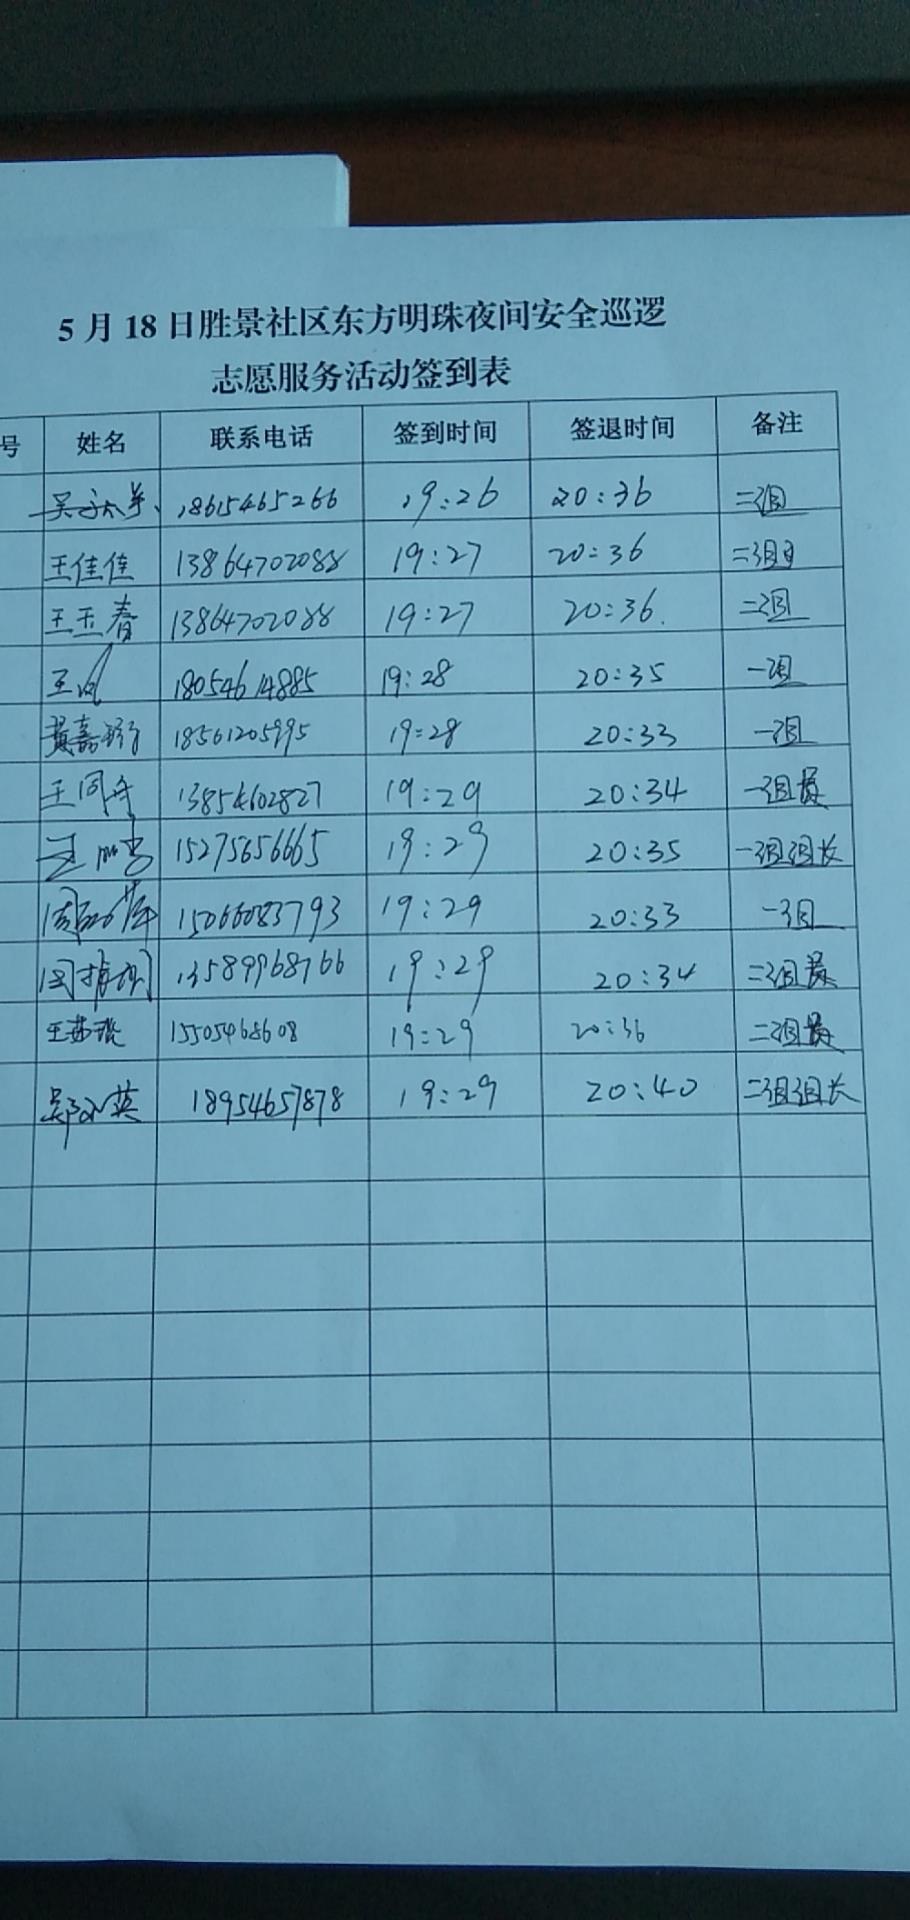 5月18日胜景社区东方明珠夜间安全巡逻
志愿服务活动签到表
号 姓名 联系电话 签到时间 签退时间 备注
18615465266 19:26 20:36 二组
王佳佳 13864702088 19:27 20:36 二组
王玉春 13864702088 19:27 20:36. 二组
18054614885 19:28 20:35 一组
黄嘉 18561205995 19:28 20:33 一组
王同 13854602827 19:29 20:34 一组员
15275656665 19:29 20:35 一组组长
周 15066083793 19:29 20:33 一组
13589968766 19:29 20:34 二组员
王茹 15505468608 19:29 20:36 二组员
英 18954657878 19:29 20:40 二组组长